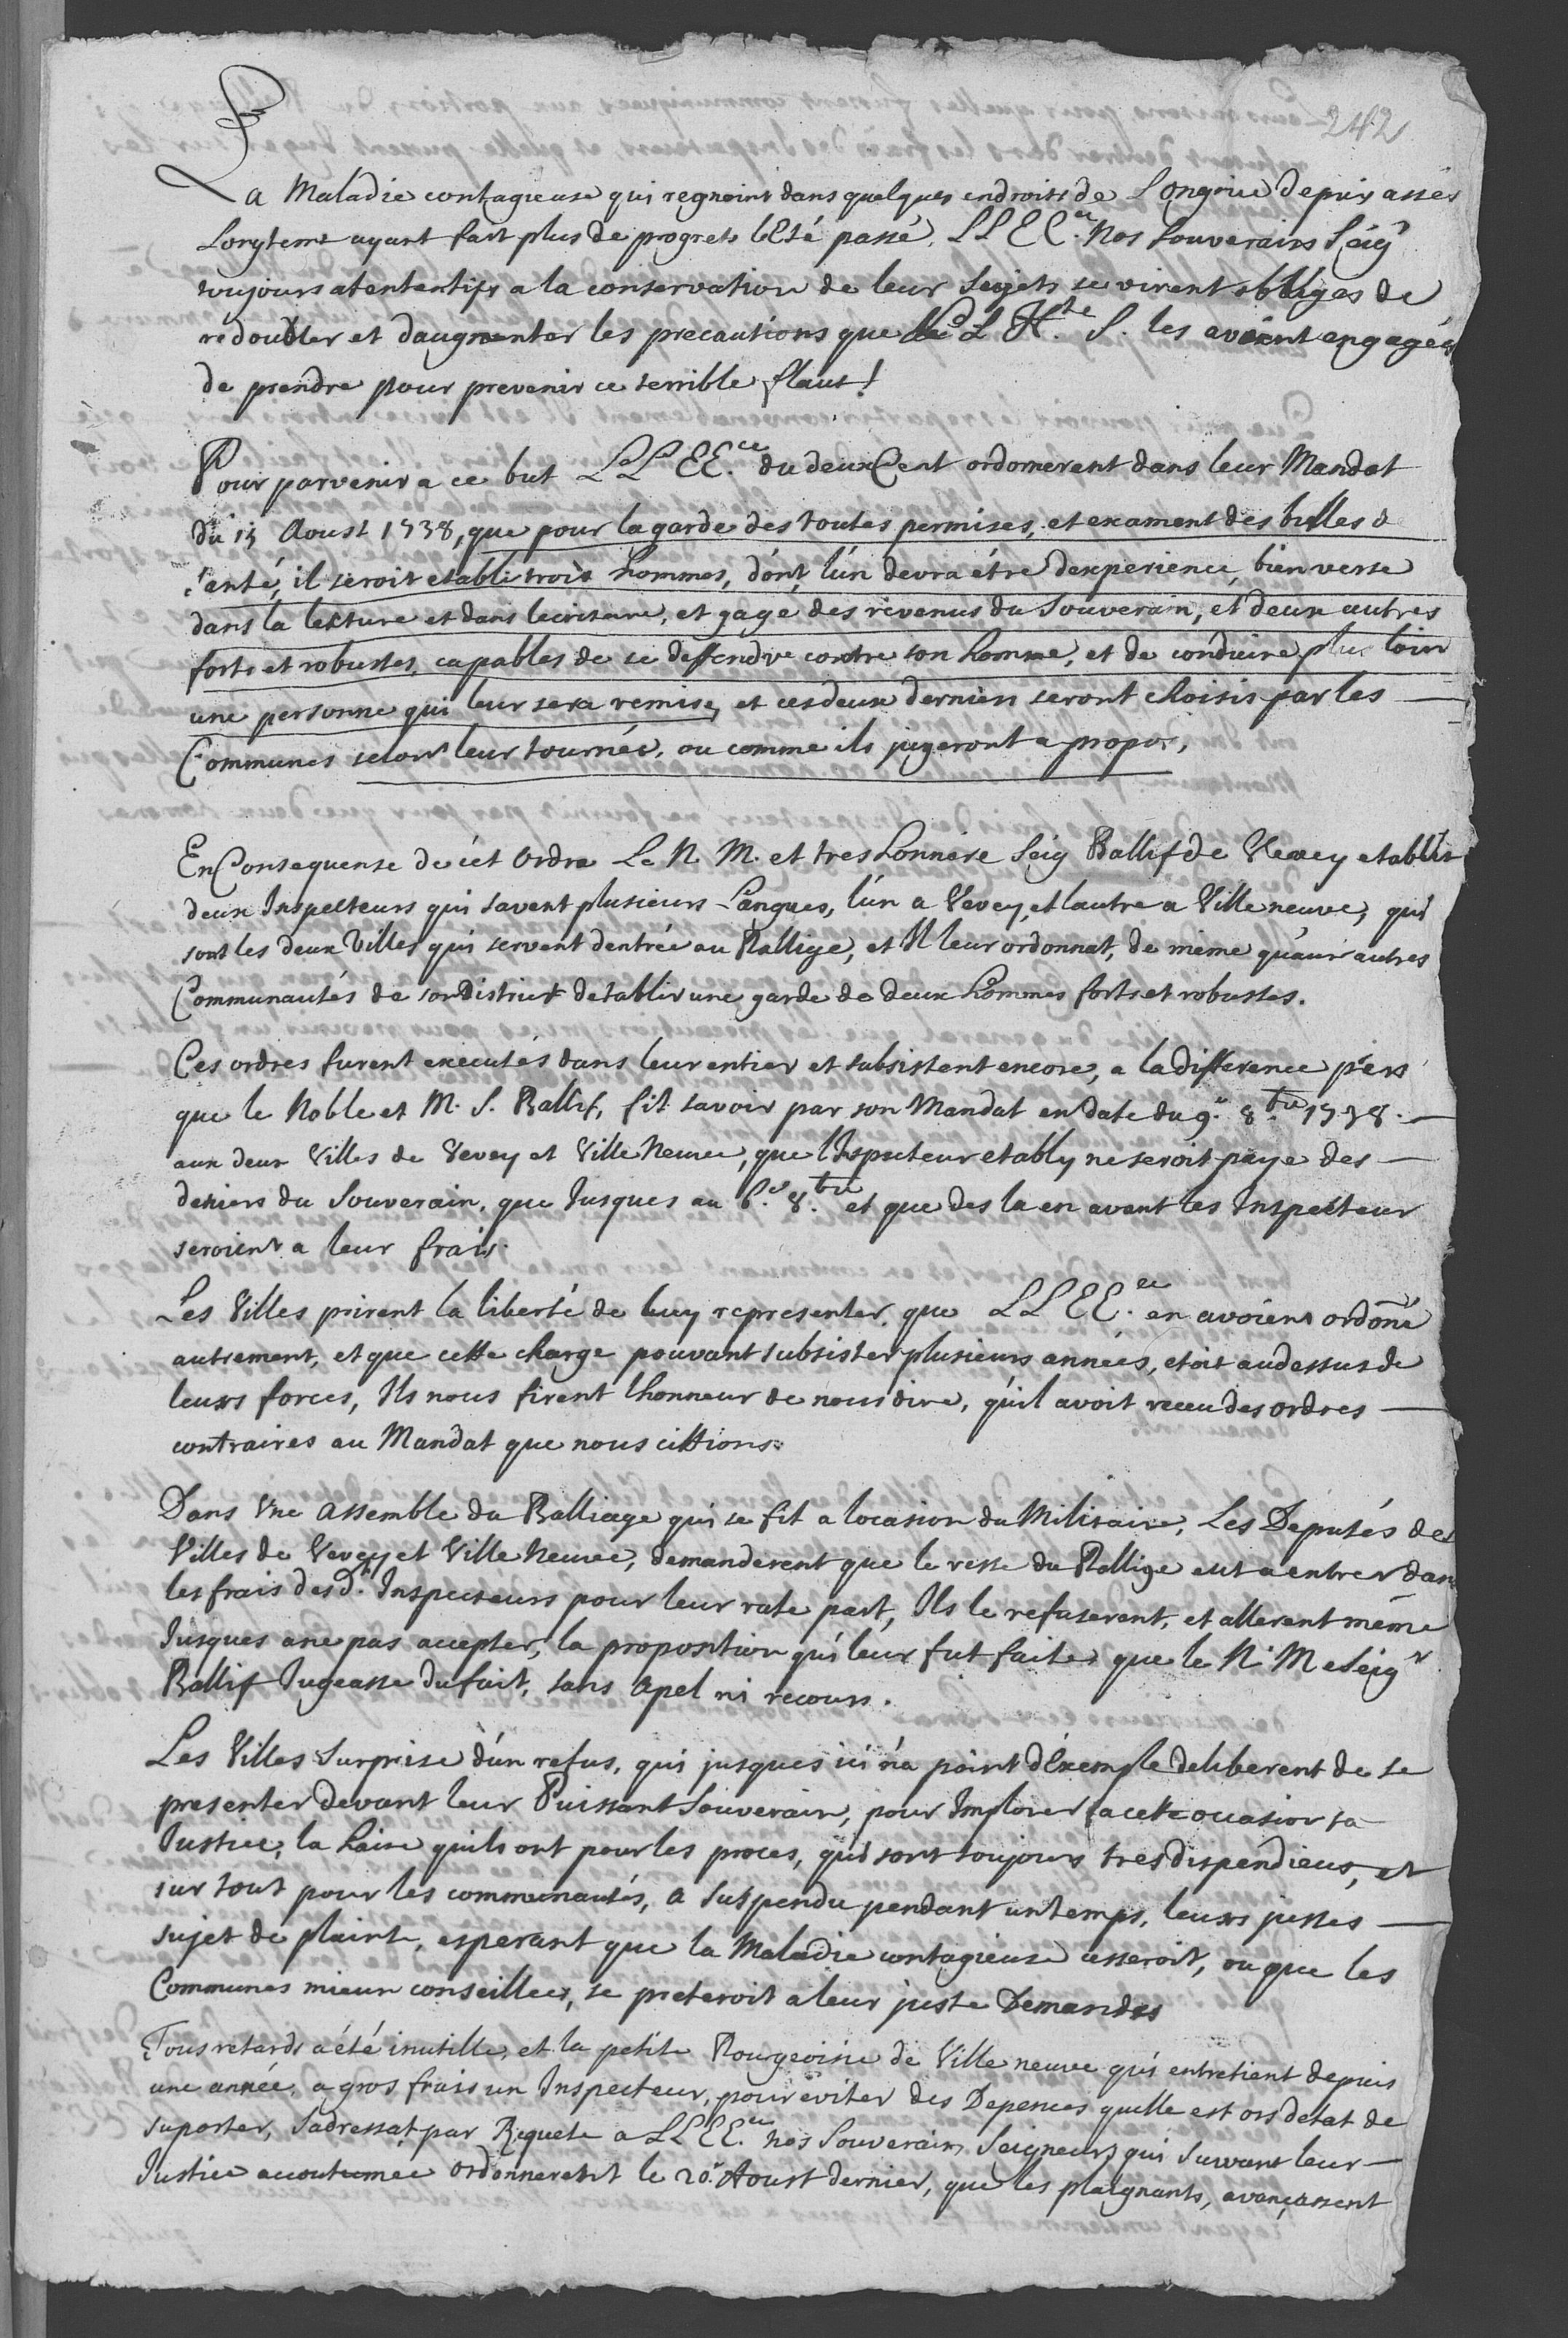 242
La Maladie contagieuse qui regnoint dans quelques endroits de Longrie depuis asses
Longtems ayant fait plus de progrets lEté passé, LLEE.ces Nos Souverains Seigr
toujours atententifs a la conservation de leur Sujets se virent obliges de
redoubler et daugmenter les precautions que L L H.te S. les avoient engagés
de prendre pour prevenir ce terrible flaut!
Pour parvenir a ce but LLEE.ce du deux Cent ordonnerent dans leur Mandat
du 13 Aoust 1738, que pour la garde des routes permises, et exament des billes d
Santé, il seroit etabli trois hommes, dont, lún devra étre dexperience, bien verse
dans la lekture et dans lecriture, et gage des revenus du Souverain, et deux autres
forts et robustes, capables de se deffendre contre son homme, et de conduire plus loin
une personne qui leur sera remise, et ces deux derniers seront choisis par les
Communes selont leur tournée, ou comme ils jugeront a propos,
En Consequense de cét Ordre Le N. M. et tres honnore Seig Ballif de Vevey etablit
deux Inspecteurs qui savent plusieurs Langues, lún a Vevey, et lautre a Villeneuve, qui
sont les deux Villes qui servent dentrée au Ballige, et Il leur ordonnat, de méme quáux autres
Communautés de son District detablir une garde de deux hommes forts et robustes.
Ces ordres furent executés dans leur entier et subsistent encore, a la difference prés
que le Noble et M. S. Ballif, fit savoir par son Mandat en date du 9.e 8.bre 1738.
aux deux Villes de Vevey et Ville Neuve, que lInspecteur etably ne seroit paye des
deniers du Souverain, que Jusques au 6.e 8.bre et que des la en avant les Inspecteur
seroient a leur frais.
Les Villes prirent la liberté de luy representer, que LLEE.ce en avoient ordoné
autrement, et que cette charge pouvant subsister plusieurs années, etoit audessus de
leurs forces, Ils nous firent lhonneur de nous dire, qúil avoit receu des ordres
contraires au Mandat que nous cittions.
Dans Une Assemble du Balliage qui se fit a locasion du Militaire, Les Deputés des
Villes de Vevey et Ville Neuve, demanderent que le reste du Ballige eut a entrer dans
les frais des D.ts Inspecteurs pour leur rate part, Ils le refuserent, et allerent méme
Jusques a ne pas accepter, la proposition qui leur fut faite, que le N. M. e Seigr
Ballif Jugeasse du fait, sans Apel ni recours.
Les Villes Surprise dún refus, qui jusques ici ńa point d'Exemple deliberent de se
presenter devant leur Puissant Souverain, pour Implorer a cete occasion sa
Justice, la haine quils ont pour les proces, qui sont toujours tres dispendieux, et
sur tout pour les communautés, a suspendu pendant un temps, leurs justes
sujet de plainte, esperant que la Maladie contagieuse cesseroit, ou que les
Communes mieux conseillees, se preteroit a leur juste Demandes
Tous retards a été inutille, et la petite Bourgeoisie de Ville neuve qui entretient depuis
une année, a gros frais un Inspecteur, pour eviter des Depences quelle est ors detat de
suporter, Sadressat par Requete a LLEE.ce nos Souverain Seigneurs qui Suivant leur
Justice accoutumée Ordonnerent le 20.e Aoust dernier, que les plaignants, avançassent